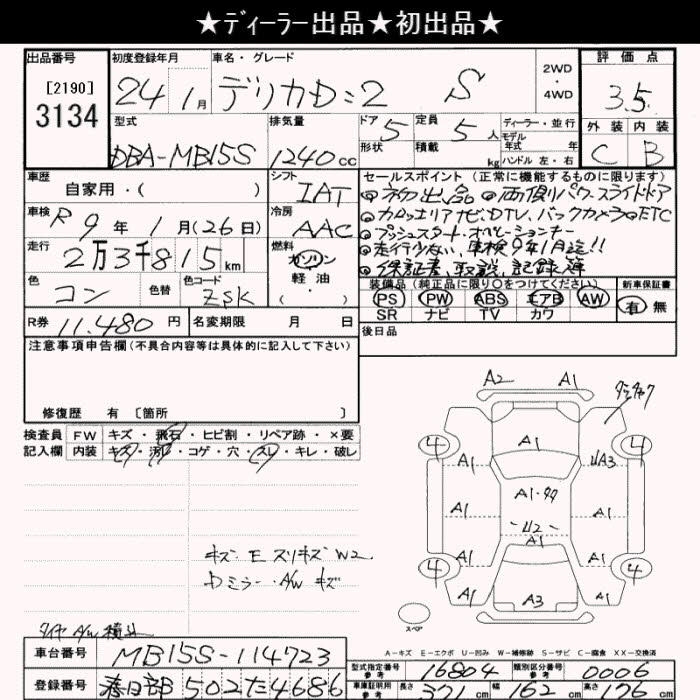 ★ディーラー出品★初出品★
出品番号 初度登録年月 車名・グレード 評価点
[2190] 3134 24 1月 デリカD:2 S 2WD・4WD 3.5
型式 排気量 ドア 5 定員 5人 ディーラー・並行 外装 内装
モデル年式 年
DBA-MB15S 1240cc 形状 積載 kg ハンドル 左・右 C B
車歴 自家用・( ) シフト IAT セールスポイント(正常に機能するものに限ります)
◎初出品 ◎両側パワースライドドア
車検 R9年1月(26日) 冷房 AAC
◎カロッツェリアナビ、DTV、バックカメラ◎ETC
◎プッシュスタート・オペレーションキー
走行 2万3千815km 燃料 ガソリン・軽油・( )
◎走行少ない、車検9年1月迄!!
◎保証書、取説、記録簿
色 コン 色替 色コード ZSK
装備品(純正品に限り○をつけてください) 新車保証書
PS PW ABS エアB AW 有 無
SR ナビ TV カワ
R券 11,480円 名変期限 月 日 後日品
注意事項申告欄(不具合内容等は具体的に記入して下さい)
修復歴 有 〔箇所 〕
検査員 FW キズ・飛石・ヒビ割・リペア跡・×要
記入欄 内装 キズ・汚れ・コゲ・穴・スレ・キレ・破レ
A2 A1
4 A1 4
A1 UA3
A1 A1
U2
A1
4 A1 A1 4
A1 A3 A1
キズ・E スリキズ W2
Dミラー・A/W キズ
スペア
タイヤ A/W 積込
A-キズ E-エクボ U-凹み W-補修跡 S-サビ C-腐食 XX-交換済
車台番号 MB15S-114723
型式指定番号 参考 16804 類別区分番号 参考 0006
登録番号 春日部502た4686
車庫証明用 参考 長さ 371cm 幅 162cm 高さ cm